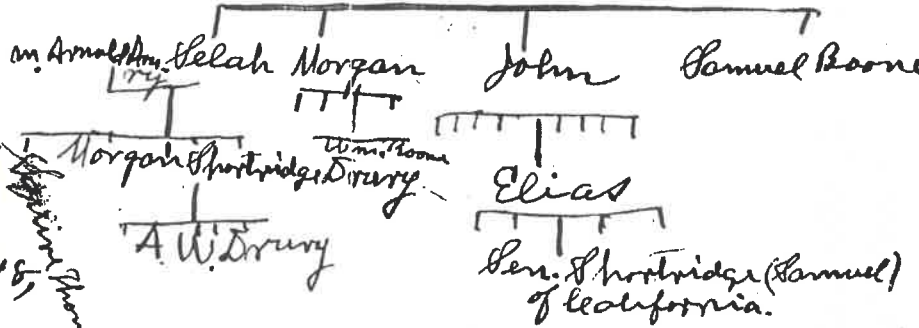 m. Arnold Drury. Selah Morgan John Samuel Boone
Wm. Boone
Morgan Shortridge Drury.
Elias
A. W. Drury
Sen. Shortridge (Samuel)
of California.